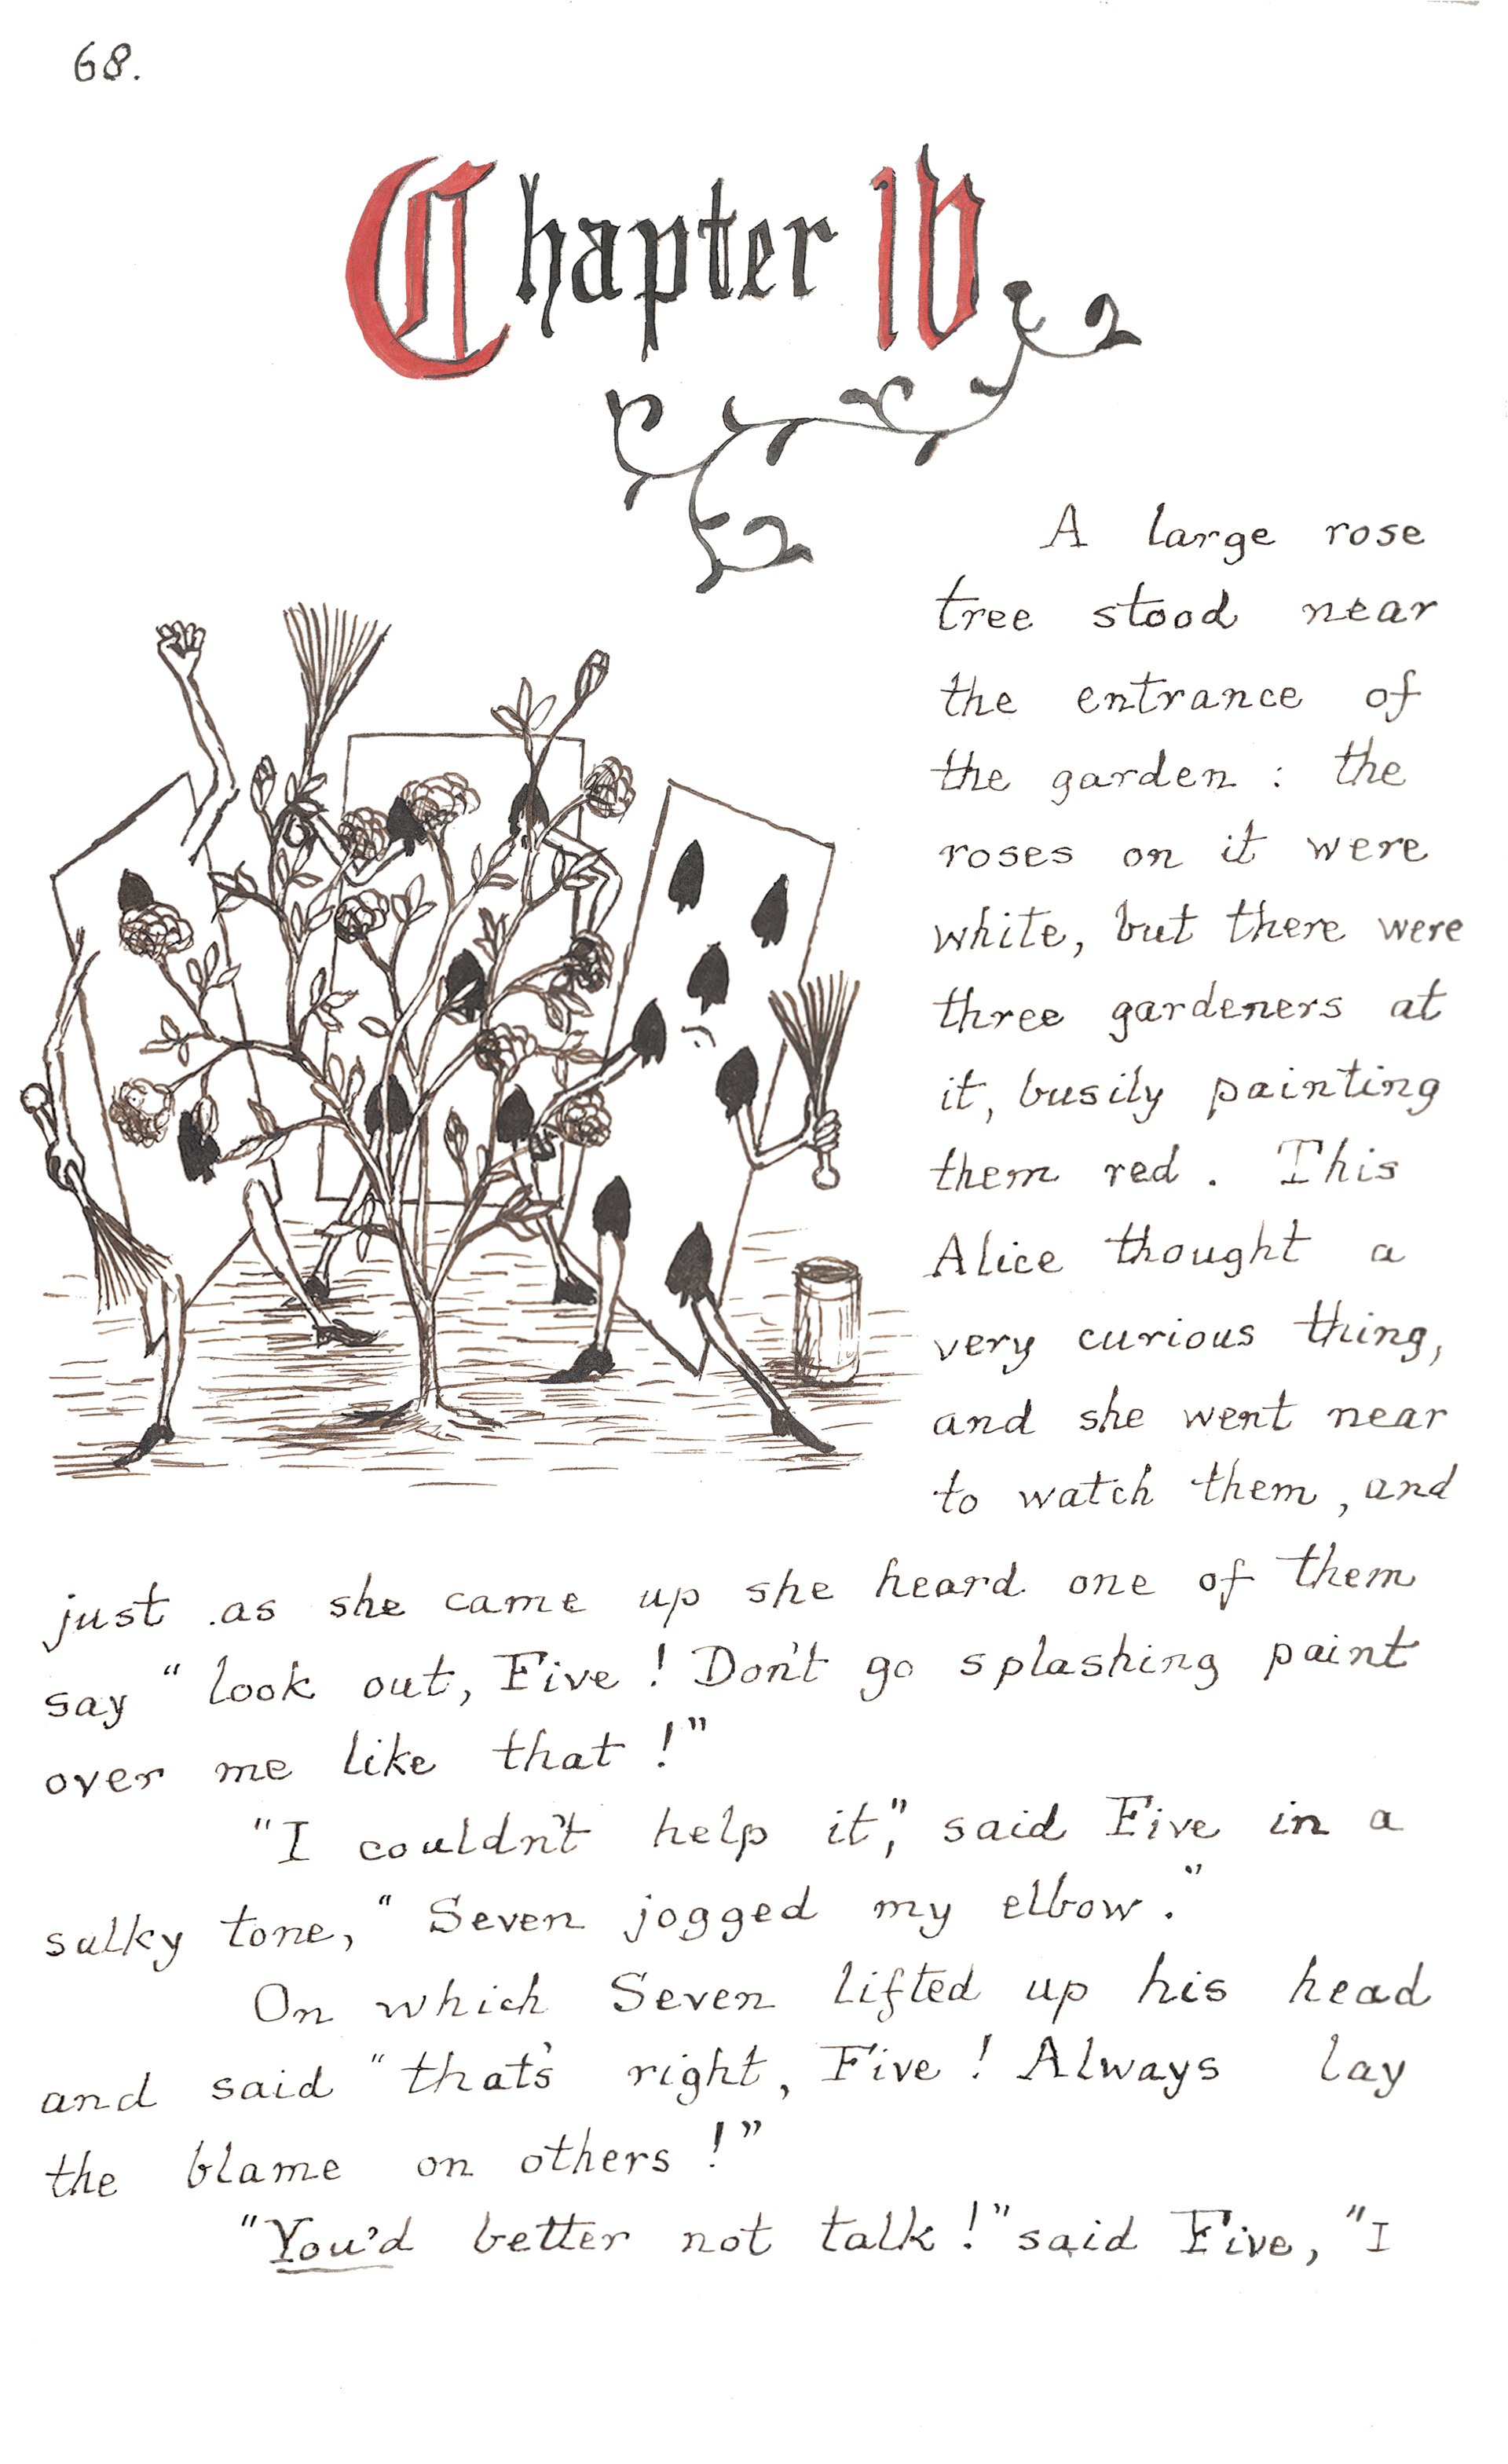 68.
Chapter IV
A large rose
tree stood near
the entrance of
the garden : the
roses on it were
white, but there were
three gardeners at
it, busily painting
them red . This
Alice thought a
very curious thing,
and she went near
to watch them , and
just as she came up she heard one of them
say “ look out, Five ! Don't go splashing paint
over me like that !”
“I couldn't help it”, said Five in a
sulky tone, “ Seven jogged my elbow .”
On which Seven lifted up his head
and said “ that's right, Five ! Always lay
the blame on others !”
“You'd better not talk !” said Five, “I